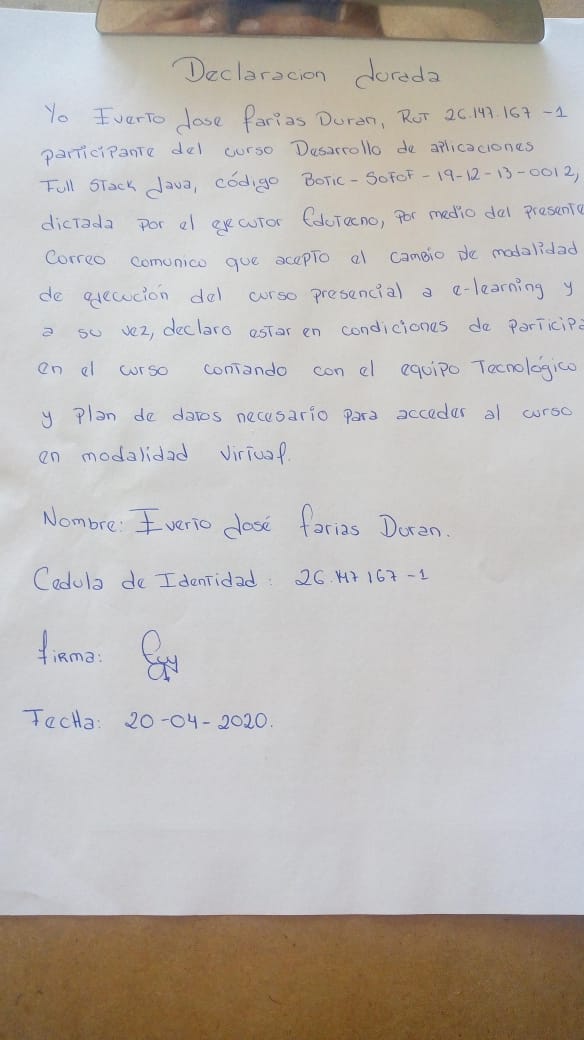 Declaracion Jurada
Yo Everto Jose farias Duran, RUT 26.147.167-1
participante del curso Desarrollo de aplicaciones
Full Stack Java, código BOTIC-SOFOF-19-12-13-0012,
dictada por el ejecutor Edutecno, por medio del presente
Correo comunico que acepto el cambio de modalidad
de ejecución del curso presencial a e-learning y
a su vez, declaro estar en condiciones de participa
en el curso contando con el equipo Tecnológico
y Plan de datos necesario para acceder al curso
en modalidad virtual.
Nombre: Everto José farias Duran.
Cedula de Identidad: 26.147167-1
firma:
Fecha: 20-04-2020.